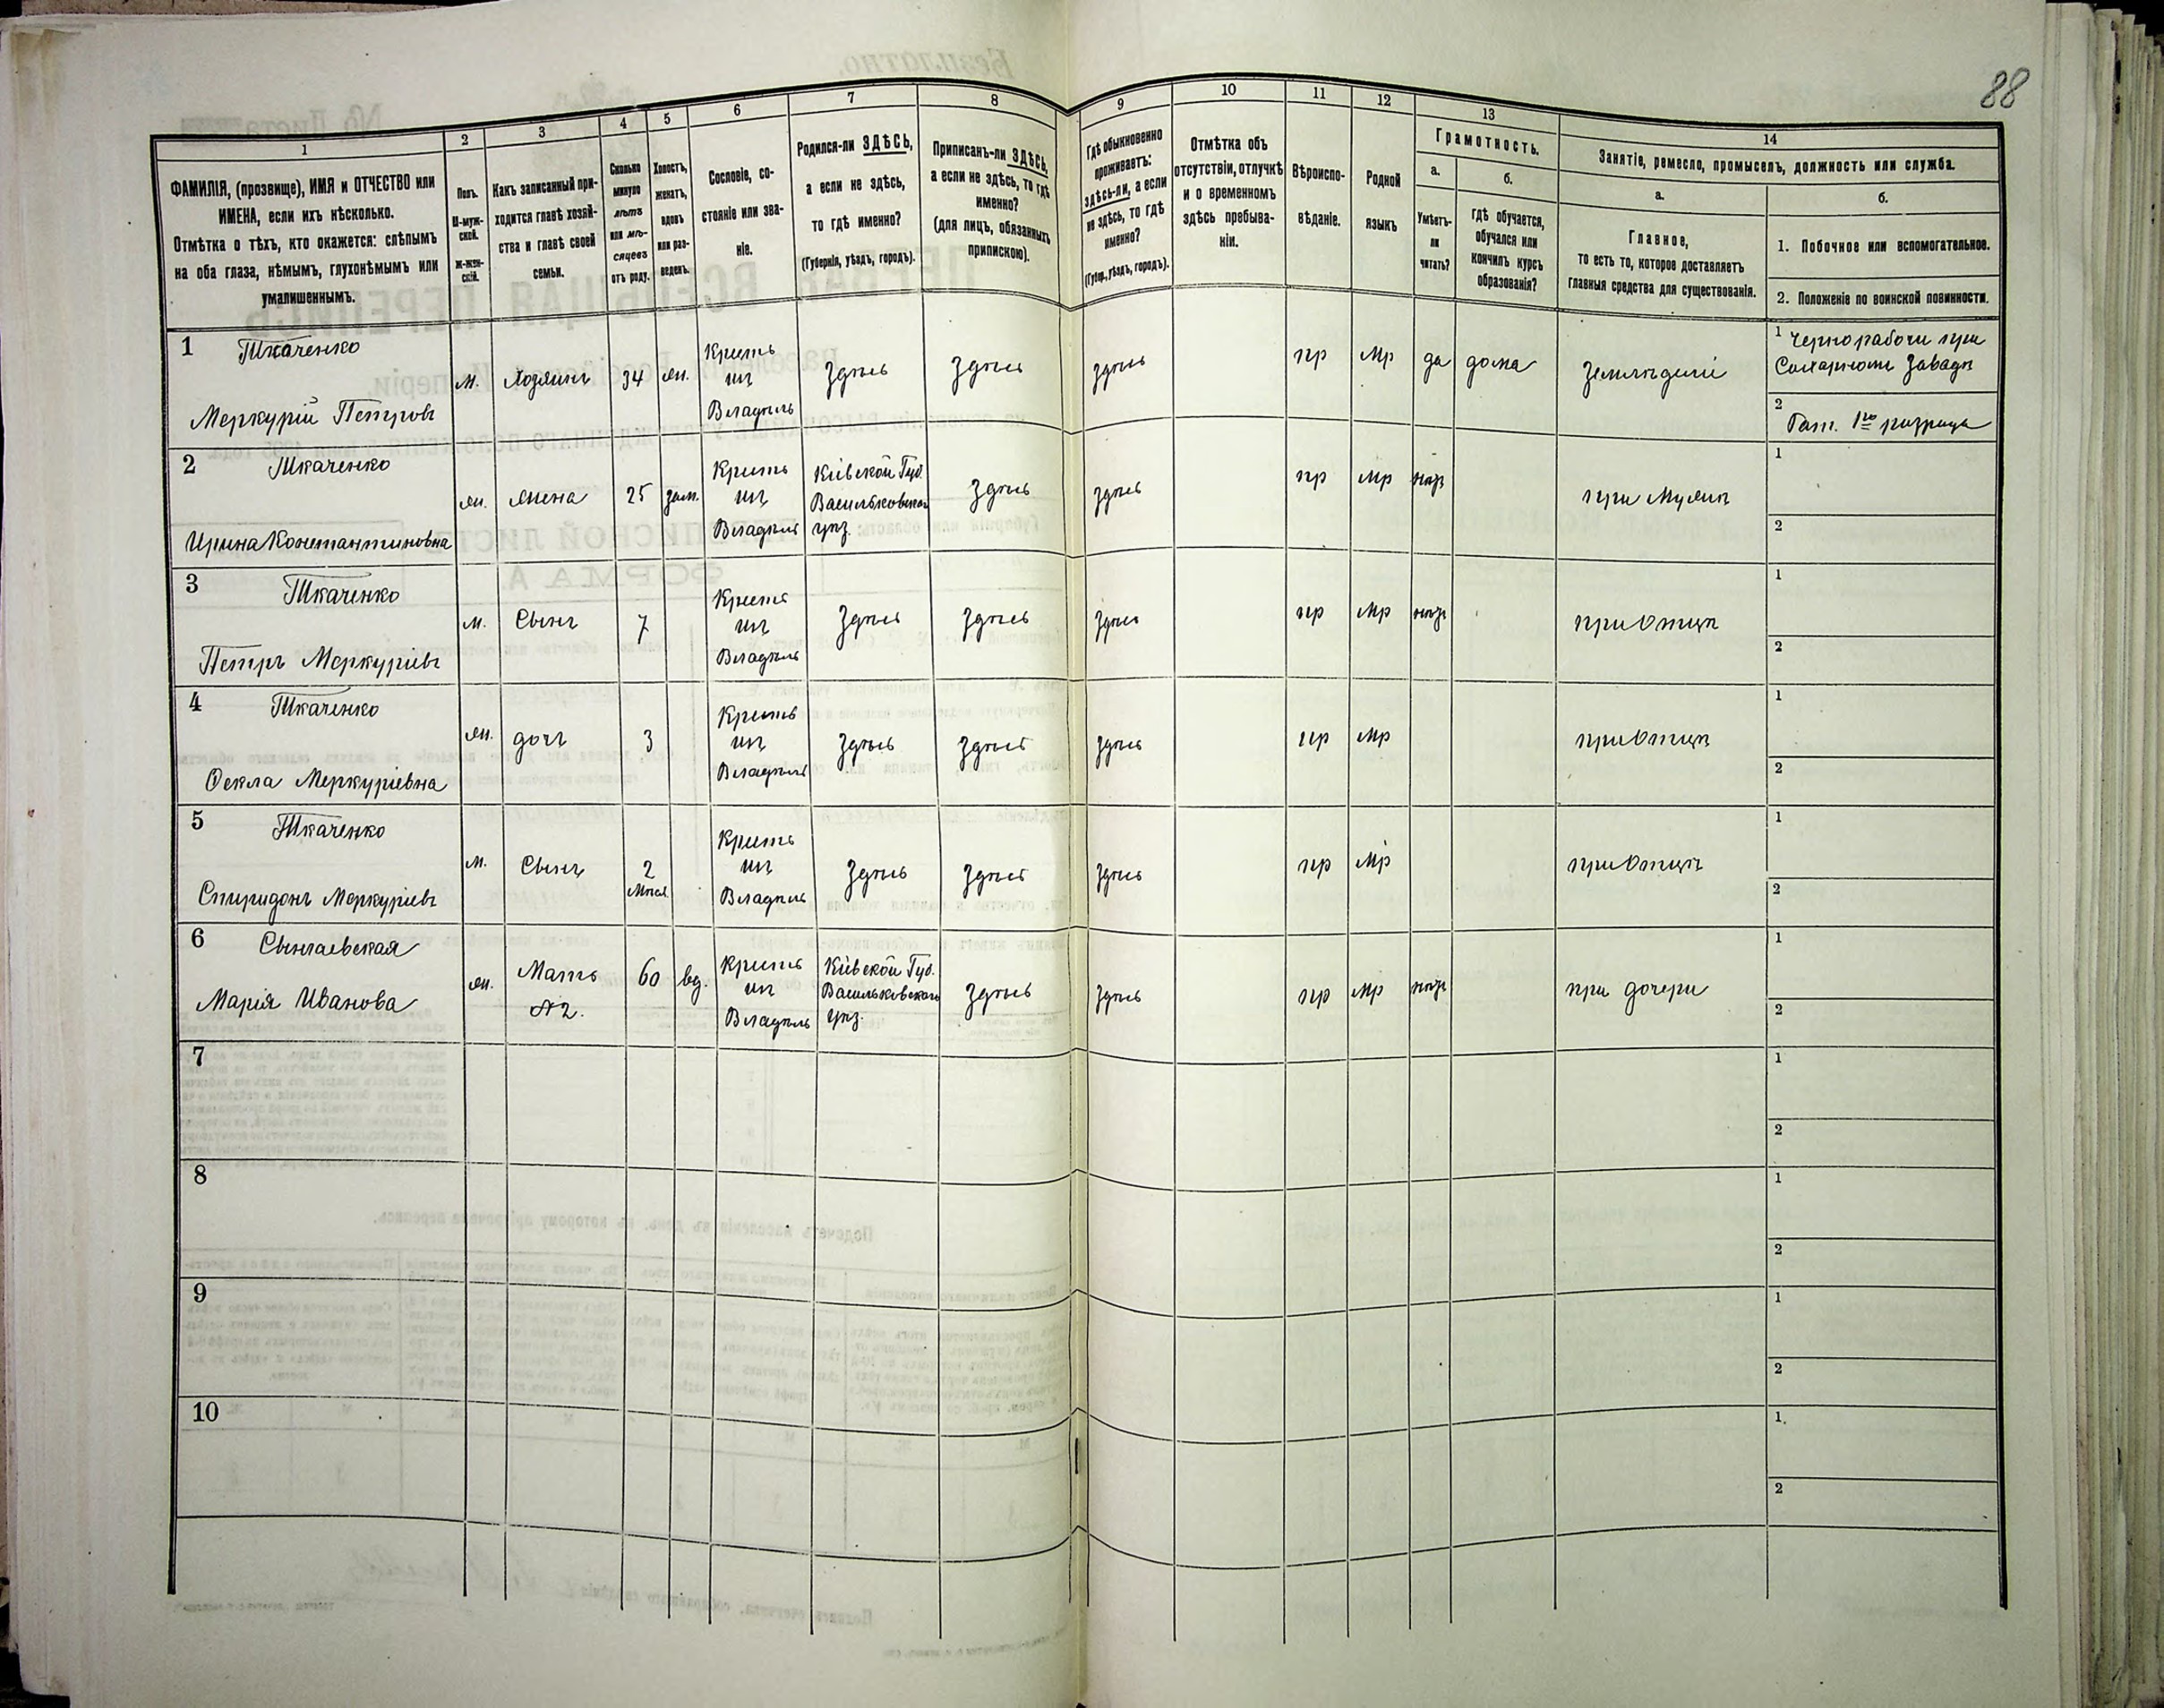 88
1
2
3
4
5
6
7
8
9
10
11
12
13
14
ФАМИЛІЯ, (прозвище), ИМЯ и ОТЧЕСТВО или
ИМЕНА, если ихъ нѣсколько.
Отмѣтка о тѣхъ, кто окажется: слѣпымъ
на оба глаза, нѣмымъ, глухонѣмымъ или
умалишеннымъ.
Полъ.
М-муж-
ской.
Ж-жен-
скій.
Какъ записанный при-
ходится главѣ хозяй-
ства и главѣ своей
семьи.
Сколько
минуло
лѣтъ
или мѣ-
сяцевъ
отъ роду.
Холостъ,
женатъ,
вдовъ
или раз-
веденъ.
Сословіе, со-
стояніе или зва-
ніе.
Родился-ли ЗДѢСЬ,
а если не здѣсь,
то гдѣ именно?
(Губернія, уѣздъ, городъ).
Приписанъ-ли ЗДѢСЬ,
а если не здѣсь, то гдѣ
именно?
(для лицъ, обязанныхъ
припискою).
Гдѣ обыкновенно
проживаетъ:
здѣсь-ли, а если
не здѣсь, то гдѣ
именно?
(Губерн., уѣздъ, городъ).
Отмѣтка объ
отсутствіи, отлучкѣ
и о временномъ
здѣсь пребыва-
ніи.
Вѣроиспо-
вѣданіе.
Родной
языкъ
Грамотность.
а.
Умѣетъ-
ли
читать?
б.
гдѣ обучается,
обучался или
кончилъ курсъ
образованія?
Занятіе, ремесло, промыселъ, должность или служба.
а.
Главное,
то есть то, которое доставляетъ
главныя средства для существованія.
б.
1. Побочное или вспомогательное.
2. Положеніе по воинской повинности.
1 Ткаченко
Меркурій Петровъ
м.
Хозяинъ
34
жн.
Крестъ
из
Владѣль
Здѣсь
Здѣсь
здѣсь
пр
Мр
да
дома
Земледѣліе
1 Чернорабочи при
Сахарномъ Заводѣ
2
Рат. 1го разряда
2 Ткаченко
Ирина Константиновна
жн.
жена
25
зам.
Крестъ
из
Владѣль
Кіевской Губ.
Васильковскаго
уѣз.
Здѣсь
здѣсь
пр
Мр
нѣт
при Мужѣ
1
2
3 Ткаченко
Петръ Меркуріевъ
м.
Сынъ
7
Крестъ
из
Владѣль
Здѣсь
Здѣсь
Здѣсь
пр
Мр
нѣт
при Отцѣ
1
2
4 Ткаченко
Ѳекла Меркуріевна
жн.
дочь
3
Крестъ
из
Владѣль
Здѣсь
Здѣсь
Здѣсь
пр
Мр
при Отцѣ
1
2
5 Ткаченко
Спиридонъ Меркуріевъ
м.
Сынъ
2
Мѣся
Крестъ
из
Владѣль
Здѣсь
Здѣсь
Здѣсь
пр
Мр
при Отцѣ
1
2
6
Марія Иванова
жн.
Мать
№2.
60
вд.
Крестъ
из
Владѣль
Кіевской Губ.
Васильковскаго
уѣз.
Здѣсь
Здѣсь
пр
Мр
нѣт
при дочери
1
2
7
1
2
8
1
2
9
1
2
10
1.
2